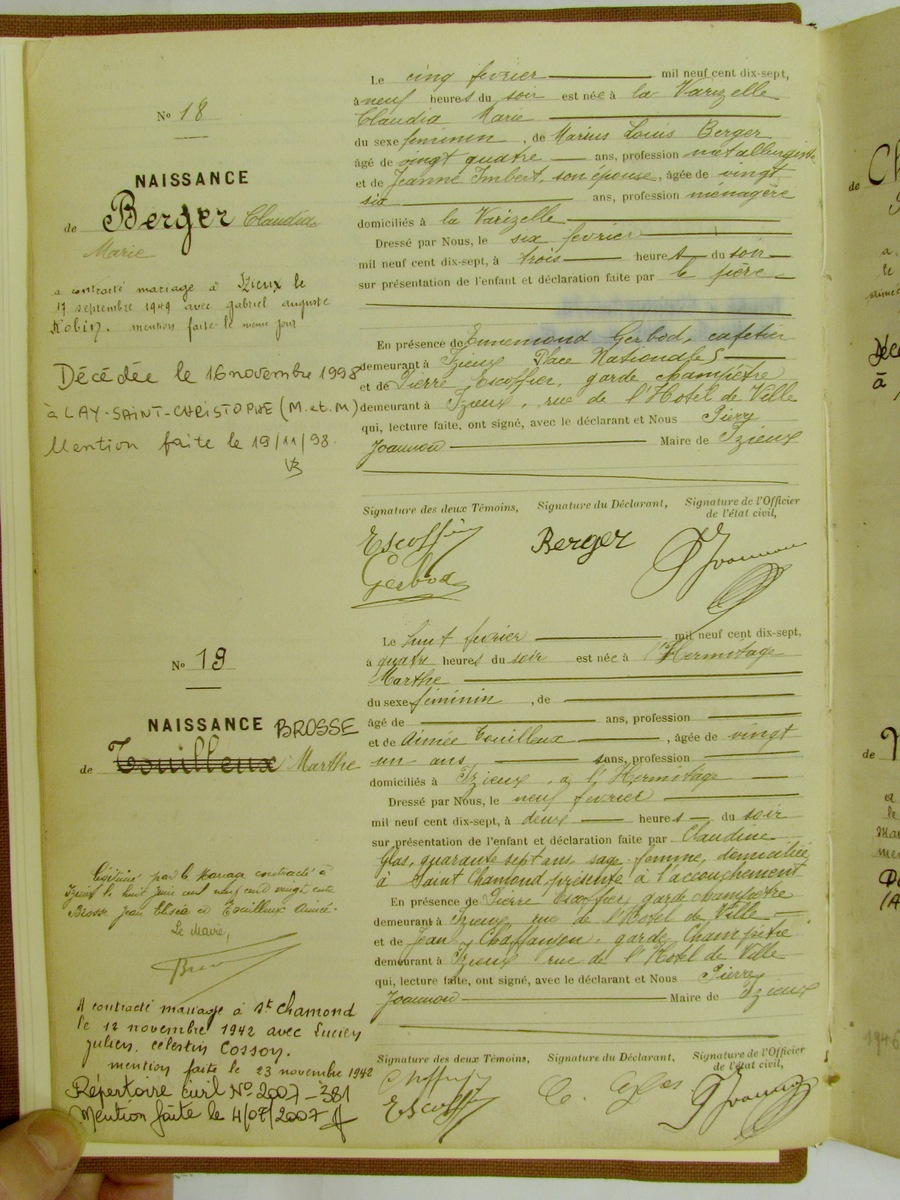 No 18
NAISSANCE
de Berger Claudia
Marie
a contracté mariage à Izieux le
17 septembre 1949 avec gabriel auguste
Robin. mention faite le même jour
Décédée le 16 novembre 1998
à LAY-SAINT-CHRISTOPHE (M.et.M)
Mention faite le 19/11/98.
Le cinq fevrier mil neuf cent dix-sept,
à neuf heures du soir est née à la Varizelle
Claudia Marie
du sexe feminin, de Marius Louis Berger
âgé de vingt quatre ans, profession métallurgiste
et de Jeanne Imbert, son épouse, âgée de vingt
six ans, profession ménagère
domiciliés à la Varizelle
Dressé par Nous, le six fevrier
mil neuf cent dix-sept, à trois heures du soir
sur présentation de l'enfant et déclaration faite par le père
En présence de Ennemond Gerbod, cafetier
demeurant à Izieux Place Nationale 5
et de Pierre Escoffier, garde champêtre
demeurant à Izieux, rue de l'Hotel de Ville
qui, lecture faite, ont signé, avec le déclarant et Nous Pierry
Joannon Maire de Izieux
Signature des deux Témoins, Signature du Déclarant, Signature de l'Officier
de l'état civil,
Escoffier Berger Joannon
Gerbod
No 19
NAISSANCE BROSSE
de Touilleux Marthe
Légitimée par le mariage contracté à
Izieux le huit juin mil neuf cent vingt
Brosse Jean Elisée et Touilleux Aimée.
Le Maire,
A contracté mariage à St Chamond
le 12 novembre 1942 avec Lucien
julien, celestin Cosson.
mention faite le 23 novembre 1942
Répertoire civil No 2007-381
Mention faite le 4/07/2007
Le huit fevrier mil neuf cent dix-sept,
à quatre heures du soir est née à l'Hermitage
Marthe
du sexe féminin, de
âgé de ans, profession
et de Aimée Touilleux, âgée de vingt
un ans, sans, profession
domiciliés à Izieux, a l'Hermitage
Dressé par Nous, le neuf fevrier
mil neuf cent dix-sept, à deux heures du soir
sur présentation de l'enfant et déclaration faite par Claudine
Glas, quarante sept ans, sage-femme, domiciliée
à Saint Chamond, présente à l'accouchement
En présence de Pierre Escoffier, garde champêtre
demeurant à Izieux, rue de l'Hotel de Ville
et de Jean garde Champêtre
demeurant à Izieux rue de l'Hotel de Ville
qui, lecture faite, ont signé, avec le déclarant et Nous Pierry
Joannon Maire de Izieux
Signature des deux Témoins, Signature du Déclarant, Signature de l'Officier
de l'état civil,
C. Glas Joannon
Escoffier